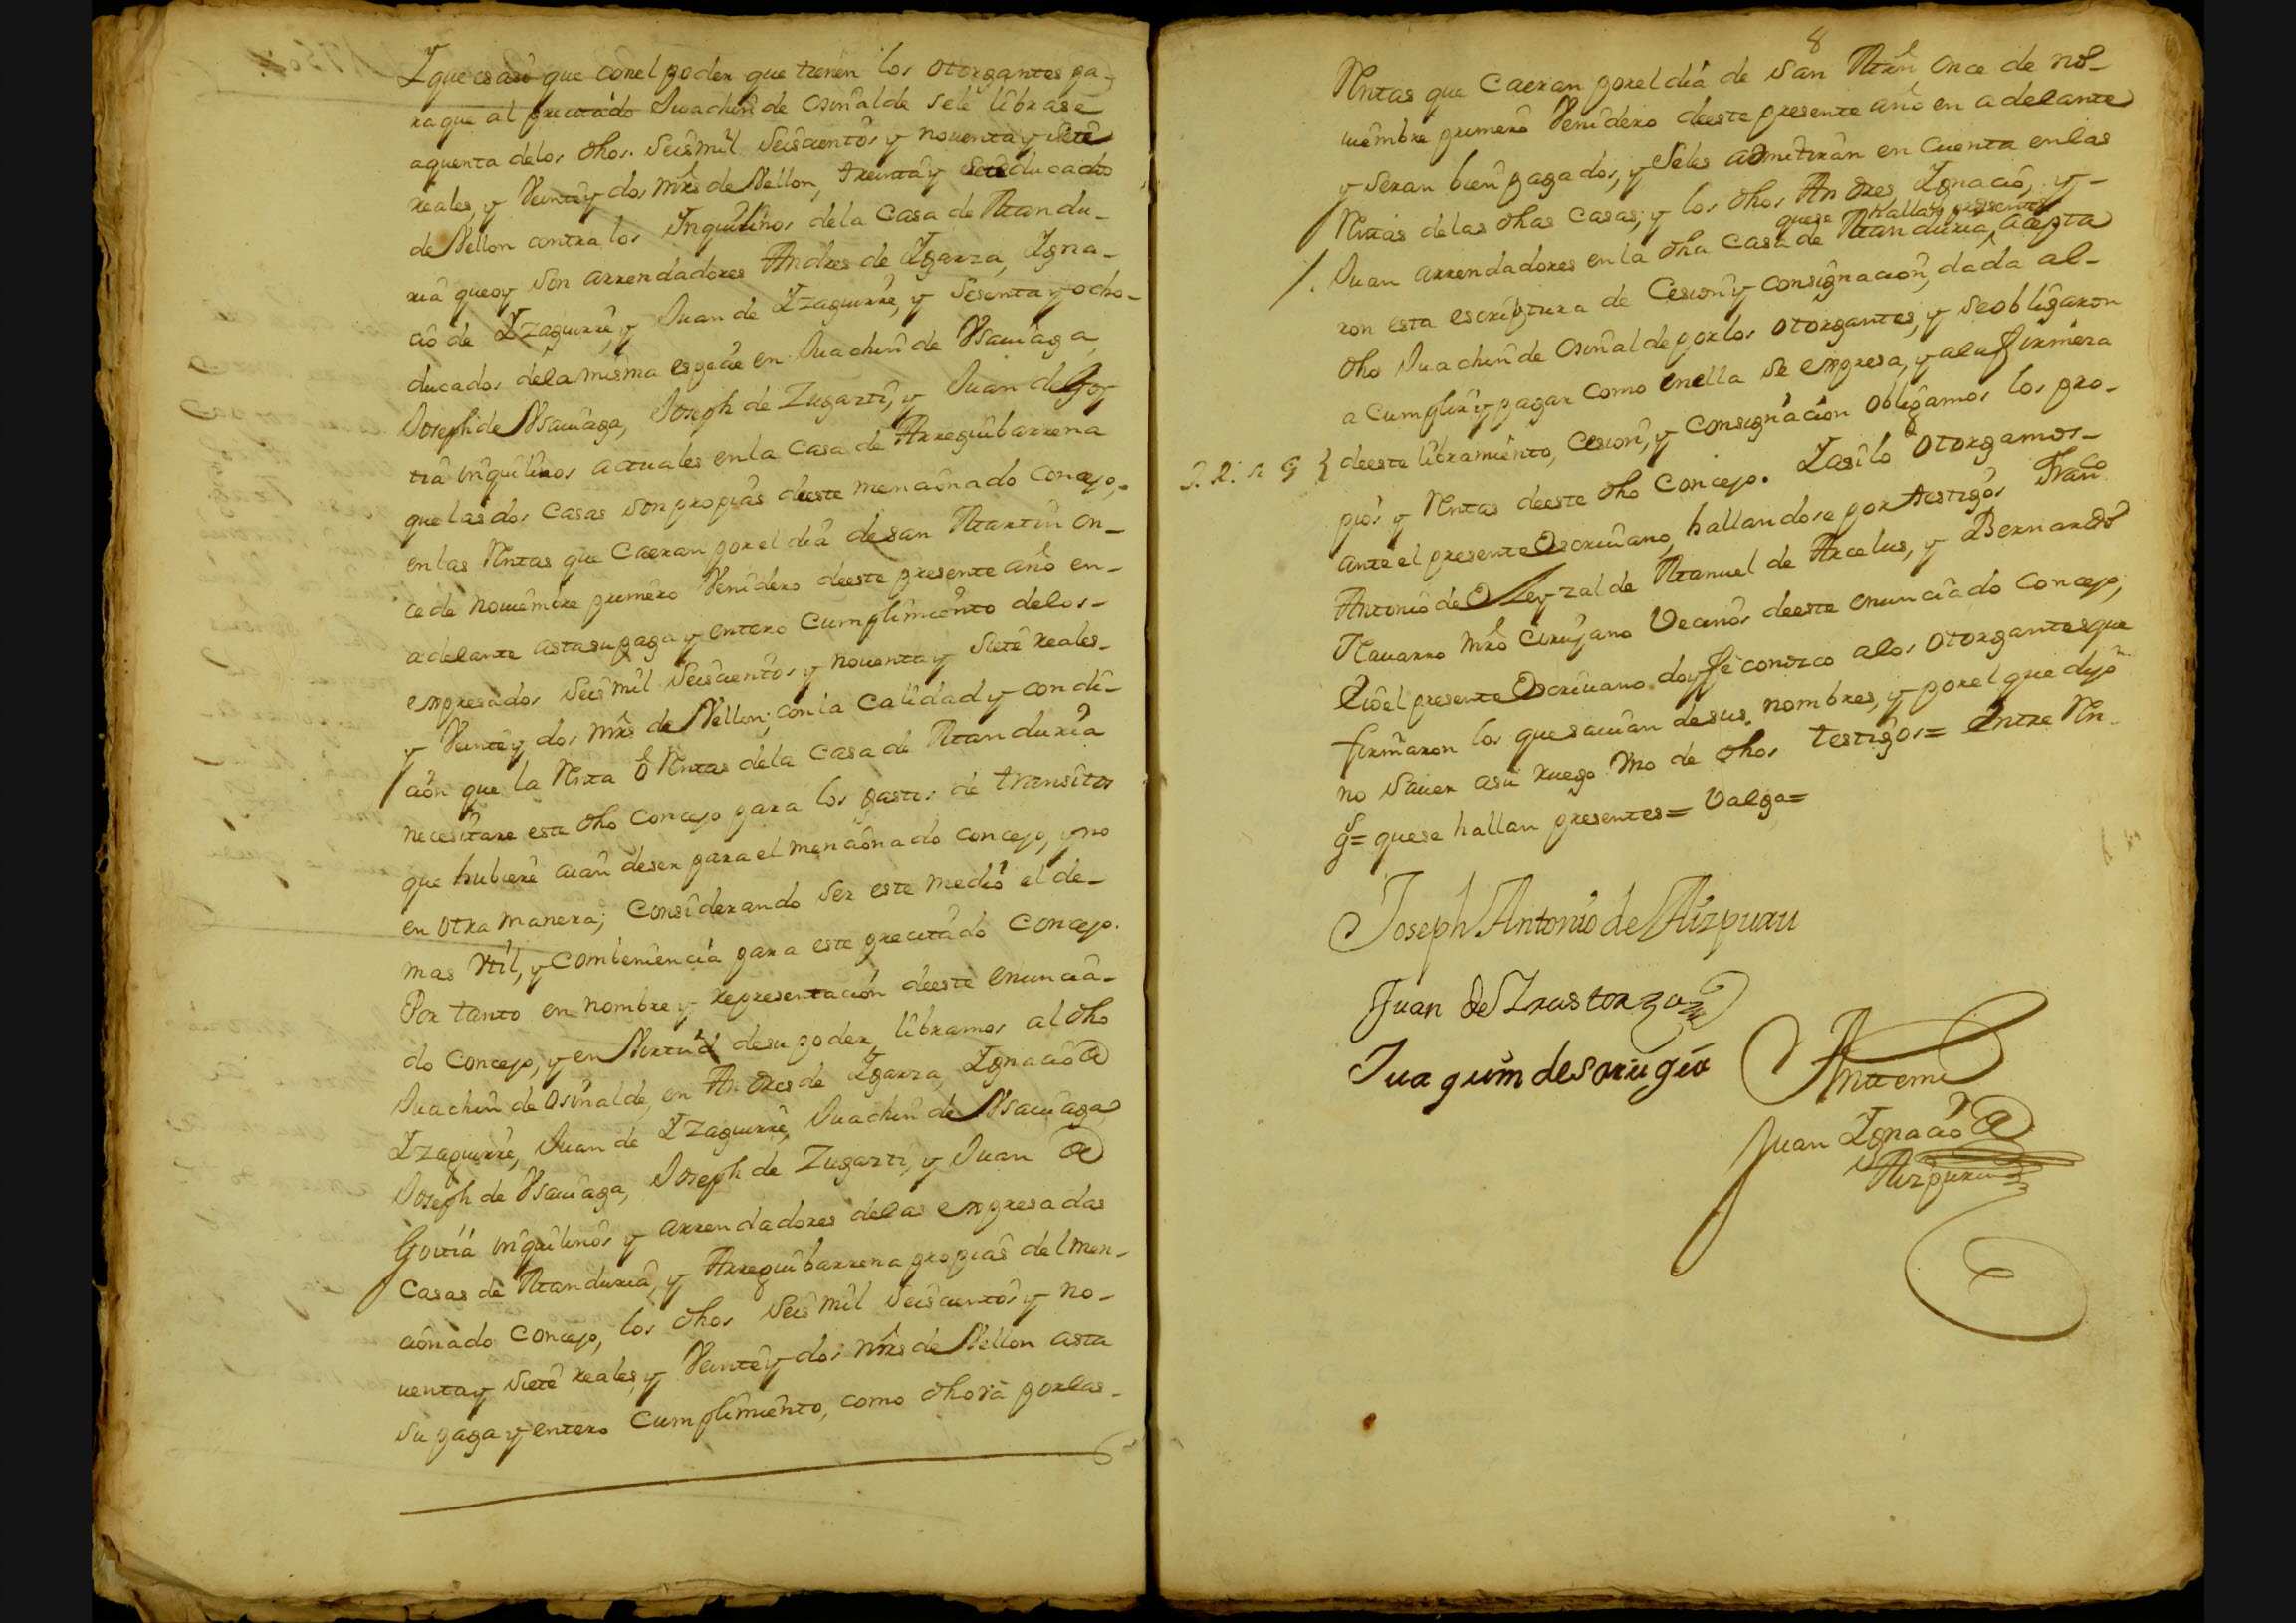 Y que es asi que con el poder que tienen los otorgantes pa-
ra que al precitado Juachin de Osinalde se le librase
aquenta de los dhos. seis mil seiscientos y noventa y siete
reales, y veinte y dos mrs de vellon, treinta y siete ducados
de vellon contra los Inquilinos de la Casa de Mandu-
ria que oy son arrendadores Andres de Ygarza, Ygna-
cio de Yzaguirre, y Juan de Yzaguirre, y sesenta y ocho-
ducados de la misma espeçie en Juachin de Vsauiaga,
Joseph de Vsauiaga, Joseph de Zugazti, y Juan de Goy
tia inquilinos actuales en la Casa de Arreguibarrena
que las dos Casas son propias deeste mencionado Concejo,
en las Rentas que Caeran por el dia de san Martin on-
ce de nouiembre primero Venidero deeste presente año en-
adelante asta su paga y entero Cumplimiento de los-
expresados seis mil seiscientos y nouenta y siete reales-
y Veinte y dos mrs de Vellon; con la Calidad y condi-
cion que la Renta ô Rentas de la Casa de Manduria
necesitare este dho Concejo para los gastos de transitos
que hubiere aian de ser para el mencionado Concejo, y no
en otra manera; Considerando ser este medio el de-
mas Vtil, y Combeniencia para este precitado Concejo.
Por tanto en nombre y representacion deeste enuncia-
do Concejo, y en Virtud de su poder, libramos al dho
Juachin de Osinalde, en Andres de Ygarza, Ygnacio de
Yzaguirre, Juan de Yzaguirre, Juachin de Vsauiaga
Joseph de Vsauiaga, Joseph de Zugazti, y Juan de
Goitia inquilinos y arrendadores de las expresadas
Casas de Manduria, y Arreguibarrena propias del men-
cionado Concejo, los dhos seis mil seiscientos y no-
uenta y siete reales, y Veinte y dos mrs de Vellon asta
su paga y entero Cumplimiento, como dho va por las-
8
Rentas que Caeran por el dia de san Mrn once de no-
uiembre primero Venidero deeste presente año en adelante
y seran bien pagados, y se les admitiran en Cuenta en las
Rentas de las dhas Casas; y los dhos Andres Ygnacio, y-
que se hallan presentes
Juan arrendadores en la dha Casa de Manduria, acepta
ron esta escriptura de Cesion y Consignacion, dada al-
dho Juachin de Osinalde por los otorgantes, y se obligaron
a Cumplir y pagar Como en ella se expresa, y a la firmeza
deeste libramiento, Cesion, y Consignacion obligamos los pro-
pios y Rentas deeste dho Concejo. Y asi lo otorgamos-
ante el presente Escriuano, hallandose por testigos Franco
Antonio de Oleyzalde Manuel de Arcelus, y Bernardo
Nauarro mro Cirujano Vecinos deeste enunciado Concejo;
E io el presente Escriuano doy fe conozco a los otorgantes que
firmaron los que sauian de sus nombres, y por el que dijo
no sauer a su ruego vno de dhos testigos= Entre Rn-
gs= que se hallan presentes= Valga=
Joseph Antonio de Aizpuru
Juan de Irastorza
Juaquim de Sarugia
Ante mi
Juan Ygnacio de
Aizpuru